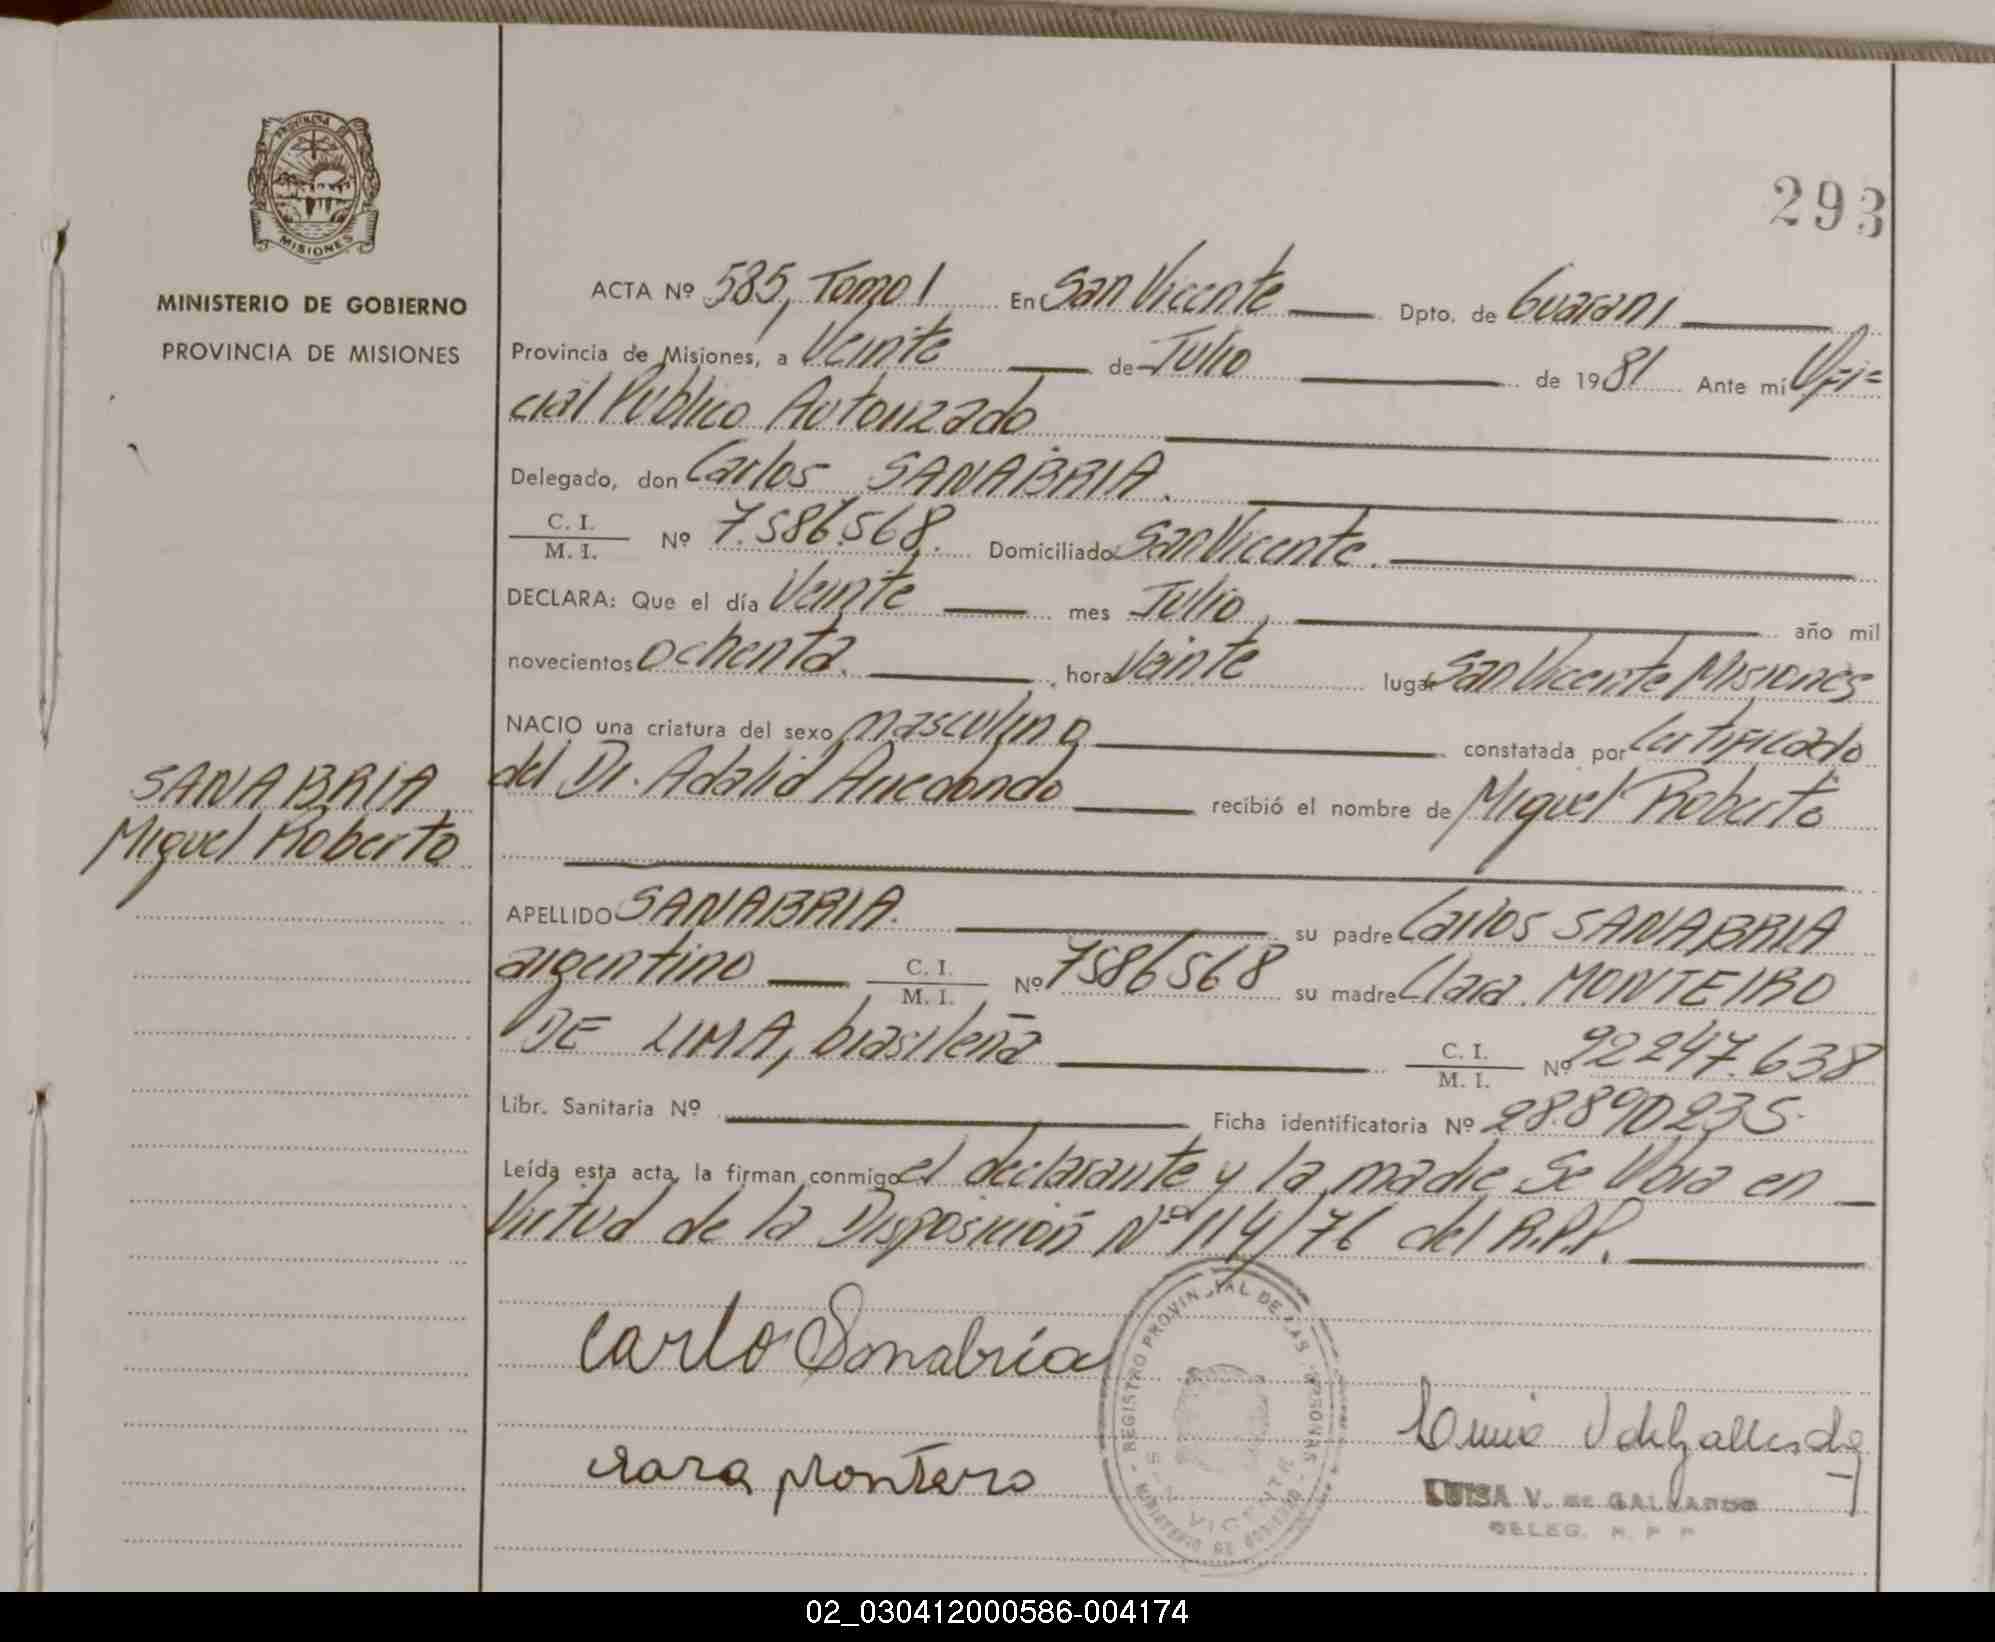 293
PROVINCIA DE
MISIONES
MINISTERIO DE GOBIERNO
PROVINCIA DE MISIONES
ACTA Nº 585, Tomo I En San Vicente Dpto. de Guarani
Provincia de Misiones, a Veinte de Julio de 1981 Ante mí Ofi=
cial Público Autorizado
Delegado, don Carlos SANABRIA.
C. I.
M. I. Nº 7.586.568. Domiciliado San Vicente.
DECLARA: Que el día Veinte mes Julio, año mil
novecientos ochenta. hora Veinte lugar San Vicente Misiones
NACIO una criatura del sexo masculino constatada por Certificado
del Dr. Adalid Arredondo recibió el nombre de Miguel Roberto
SANABRIA
Miguel Roberto
APELLIDO SANABRIA. su padre Carlos SANABRIA
argentino C. I.
M. I. Nº 7586568 su madre Clara MONTEIRO
DE LIMA, brasileña C. I.
M. I. Nº 92247.638
Libr. Sanitaria Nº Ficha identificatoria Nº 28.890235.
Leída esta acta, la firman conmigo el declarante y la madre Se labra en
Virtud de la Disposición Nº 114/76 del R.P.P.
Carlo Sanabria
REGISTRO PROVINCIAL DE LAS PERSONAS
MINISTERIO DE GOBIERNO
SAN VICENTE
clara Montero
LUISA V. DE GALLARDO
DELEG. R. P. P.
02_030412000586-004174